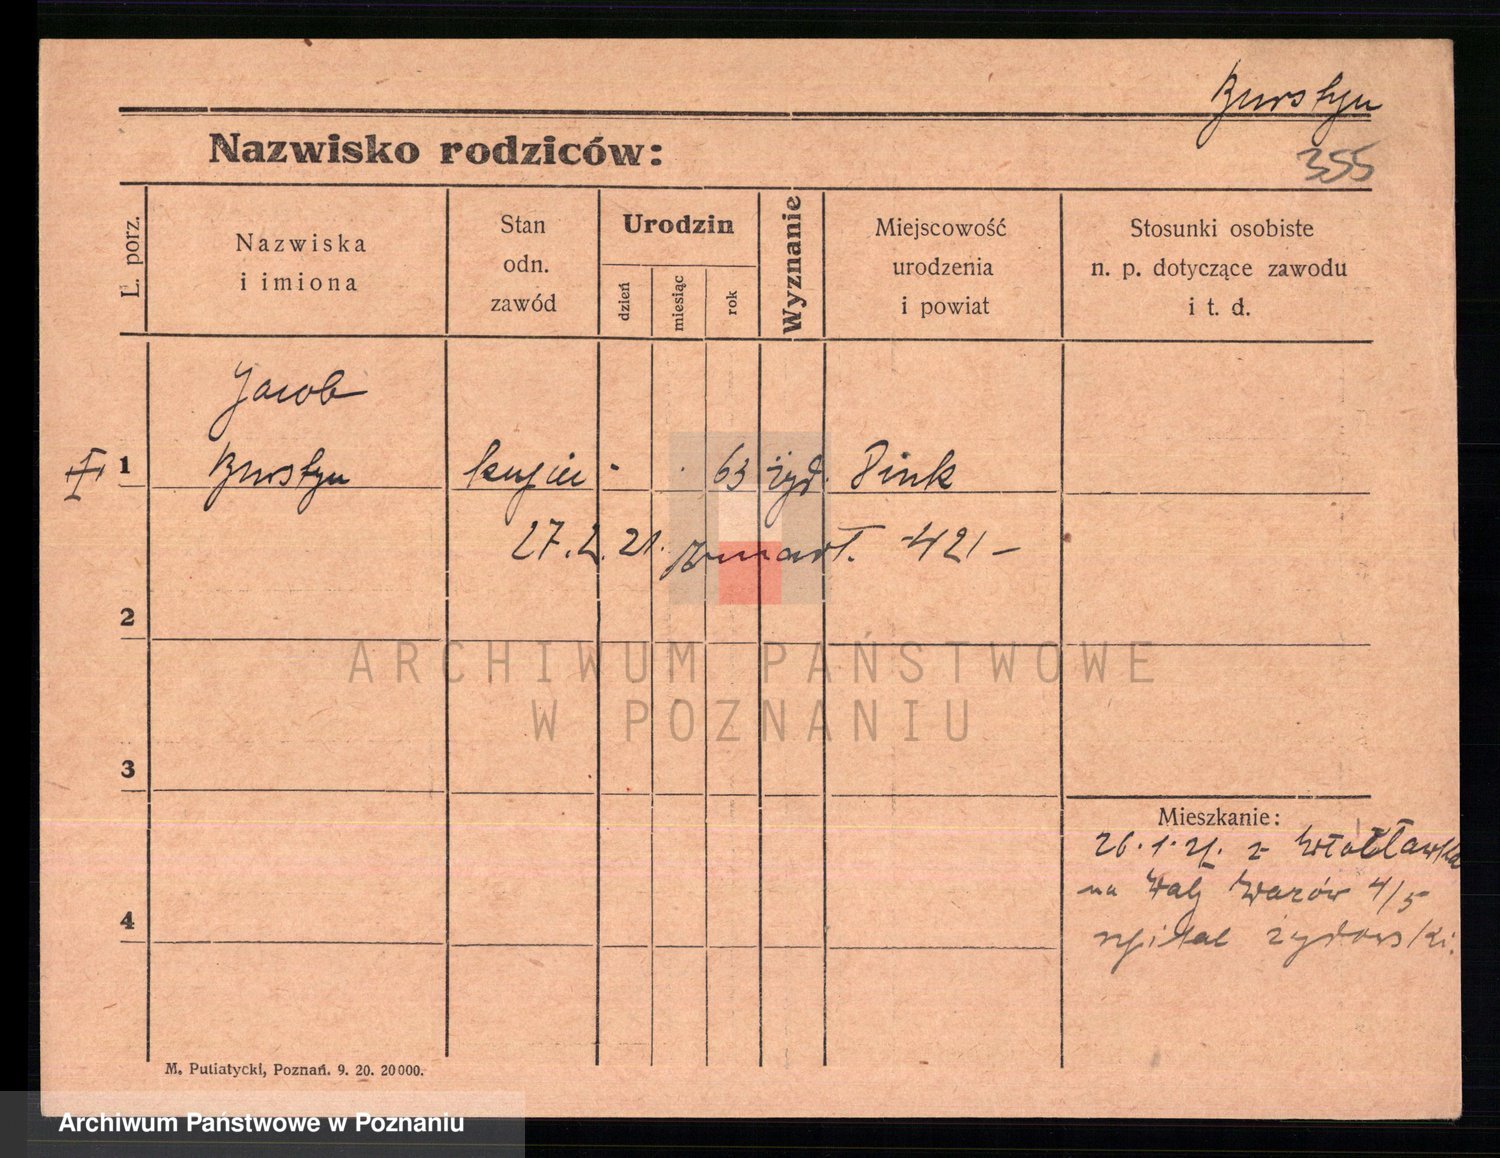 Burstyn
355
Nazwisko rodziców:
L. porz.
Nazwiska
i imiona
Stan
odn.
zawód
Urodzin
dzień
miesiąc
rok
Wyznanie
Miejscowość
urodzenia
i powiat
Stosunki osobiste
n. p. dotyczące zawodu
i t. d.
Jacob
1 Burstyn kupiec - . 63 żyd. Pinsk
27.2.21. zmarł. 421 –
2
ARCHIWUM PAŃSTWOWE
W POZNANIU
3
Mieszkanie:
26.1.21. z Włocławka
na Wały Wazów 4/5
szpital żydowski.
4
M. Putiatycki, Poznań. 9. 20. 20000.
Archiwum Państwowe w Poznaniu